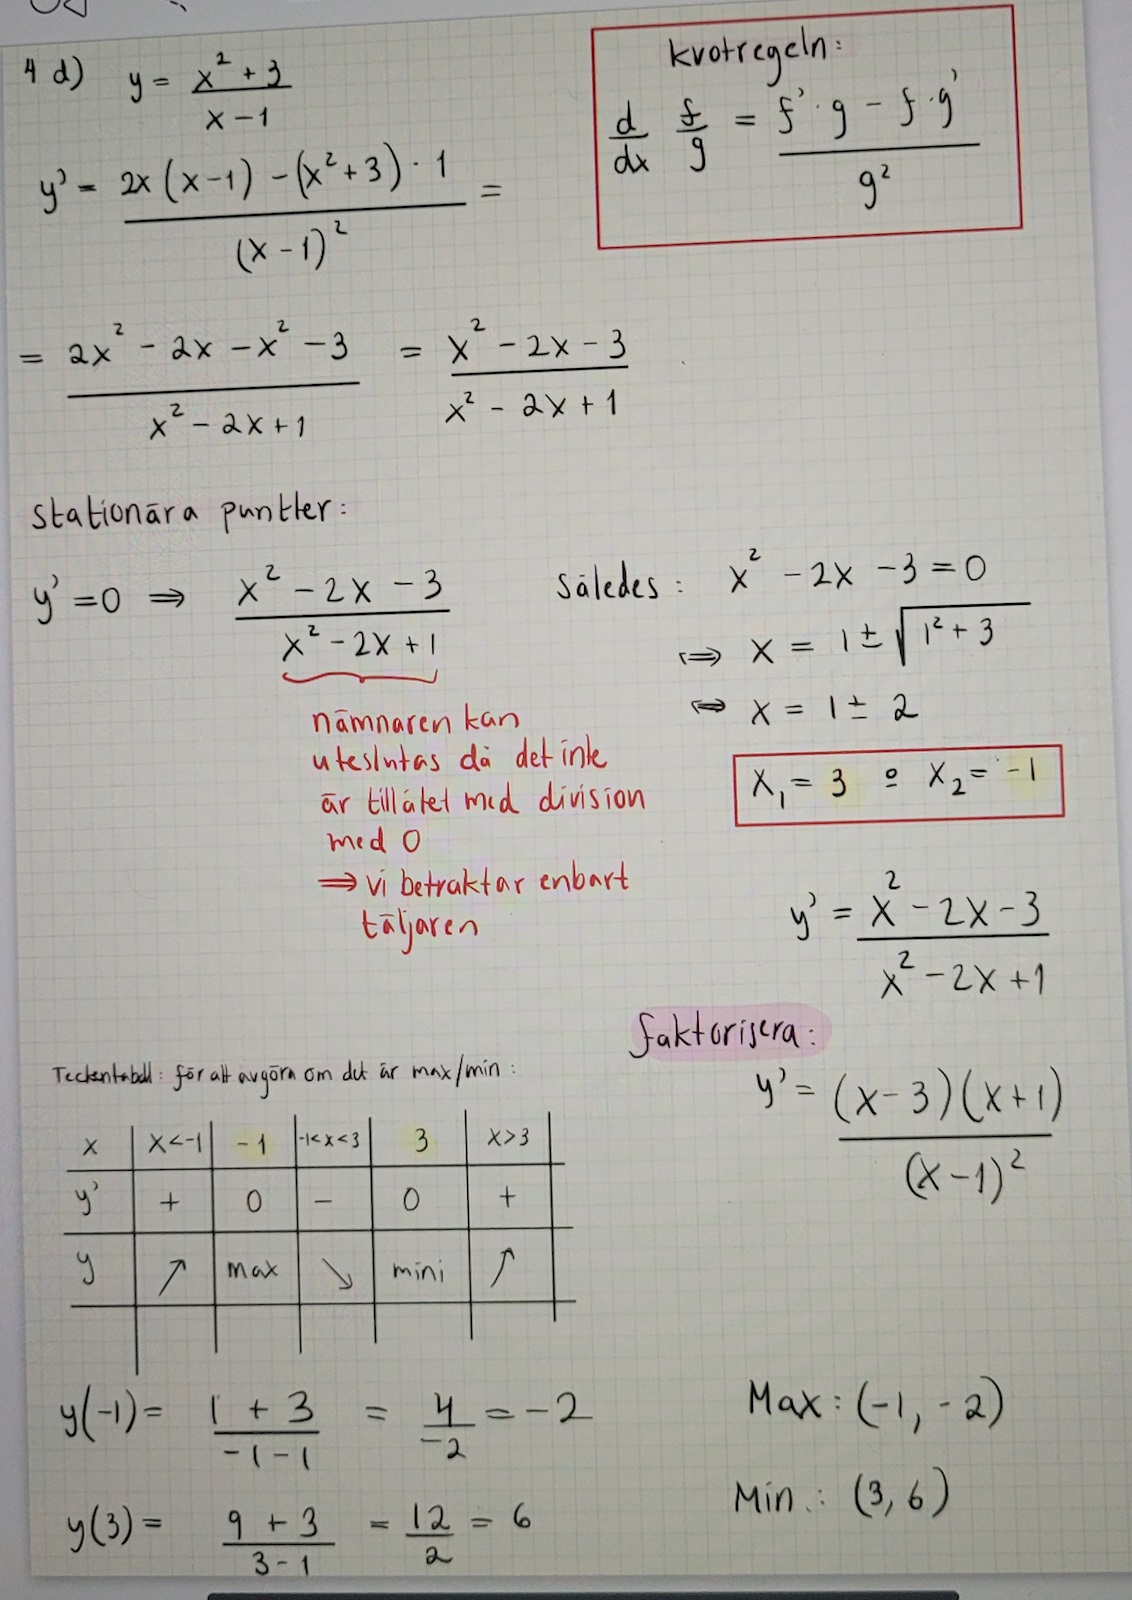 4 d) y = (x² + 3)/(x - 1)
kvotregeln:
d/dx f/g = (f' · g - f · g')/g²
y' = (2x(x-1) - (x²+3) · 1)/(x-1)² =
= (2x² - 2x - x² - 3)/(x² - 2x + 1) = (x² - 2x - 3)/(x² - 2x + 1)
Stationära punkter:
y' = 0 ⇒ (x² - 2x - 3)/(x² - 2x + 1)
nämnaren kan
uteslutas då det inte
är tillåtet med division
med 0
⇒ vi betraktar enbart
täljaren
Således: x² - 2x - 3 = 0
⇔ x = 1 ± √(1² + 3)
⇔ x = 1 ± 2
x₁ = 3 o x₂ = -1
y' = (x² - 2x - 3)/(x² - 2x + 1)
faktorisera:
y' = (x-3)(x+1)/(x-1)²
Teckentabell: för att avgöra om det är max/min:
x | x<-1 | -1 | -1<x<3 | 3 | x>3
y' | + | 0 | - | 0 | +
y | ↗ | max | ↘ | mini | ↗
y(-1) = (1 + 3)/(-1-1) = 4/-2 = -2
Max: (-1, -2)
y(3) = (9 + 3)/(3-1) = 12/2 = 6
Min.: (3, 6)